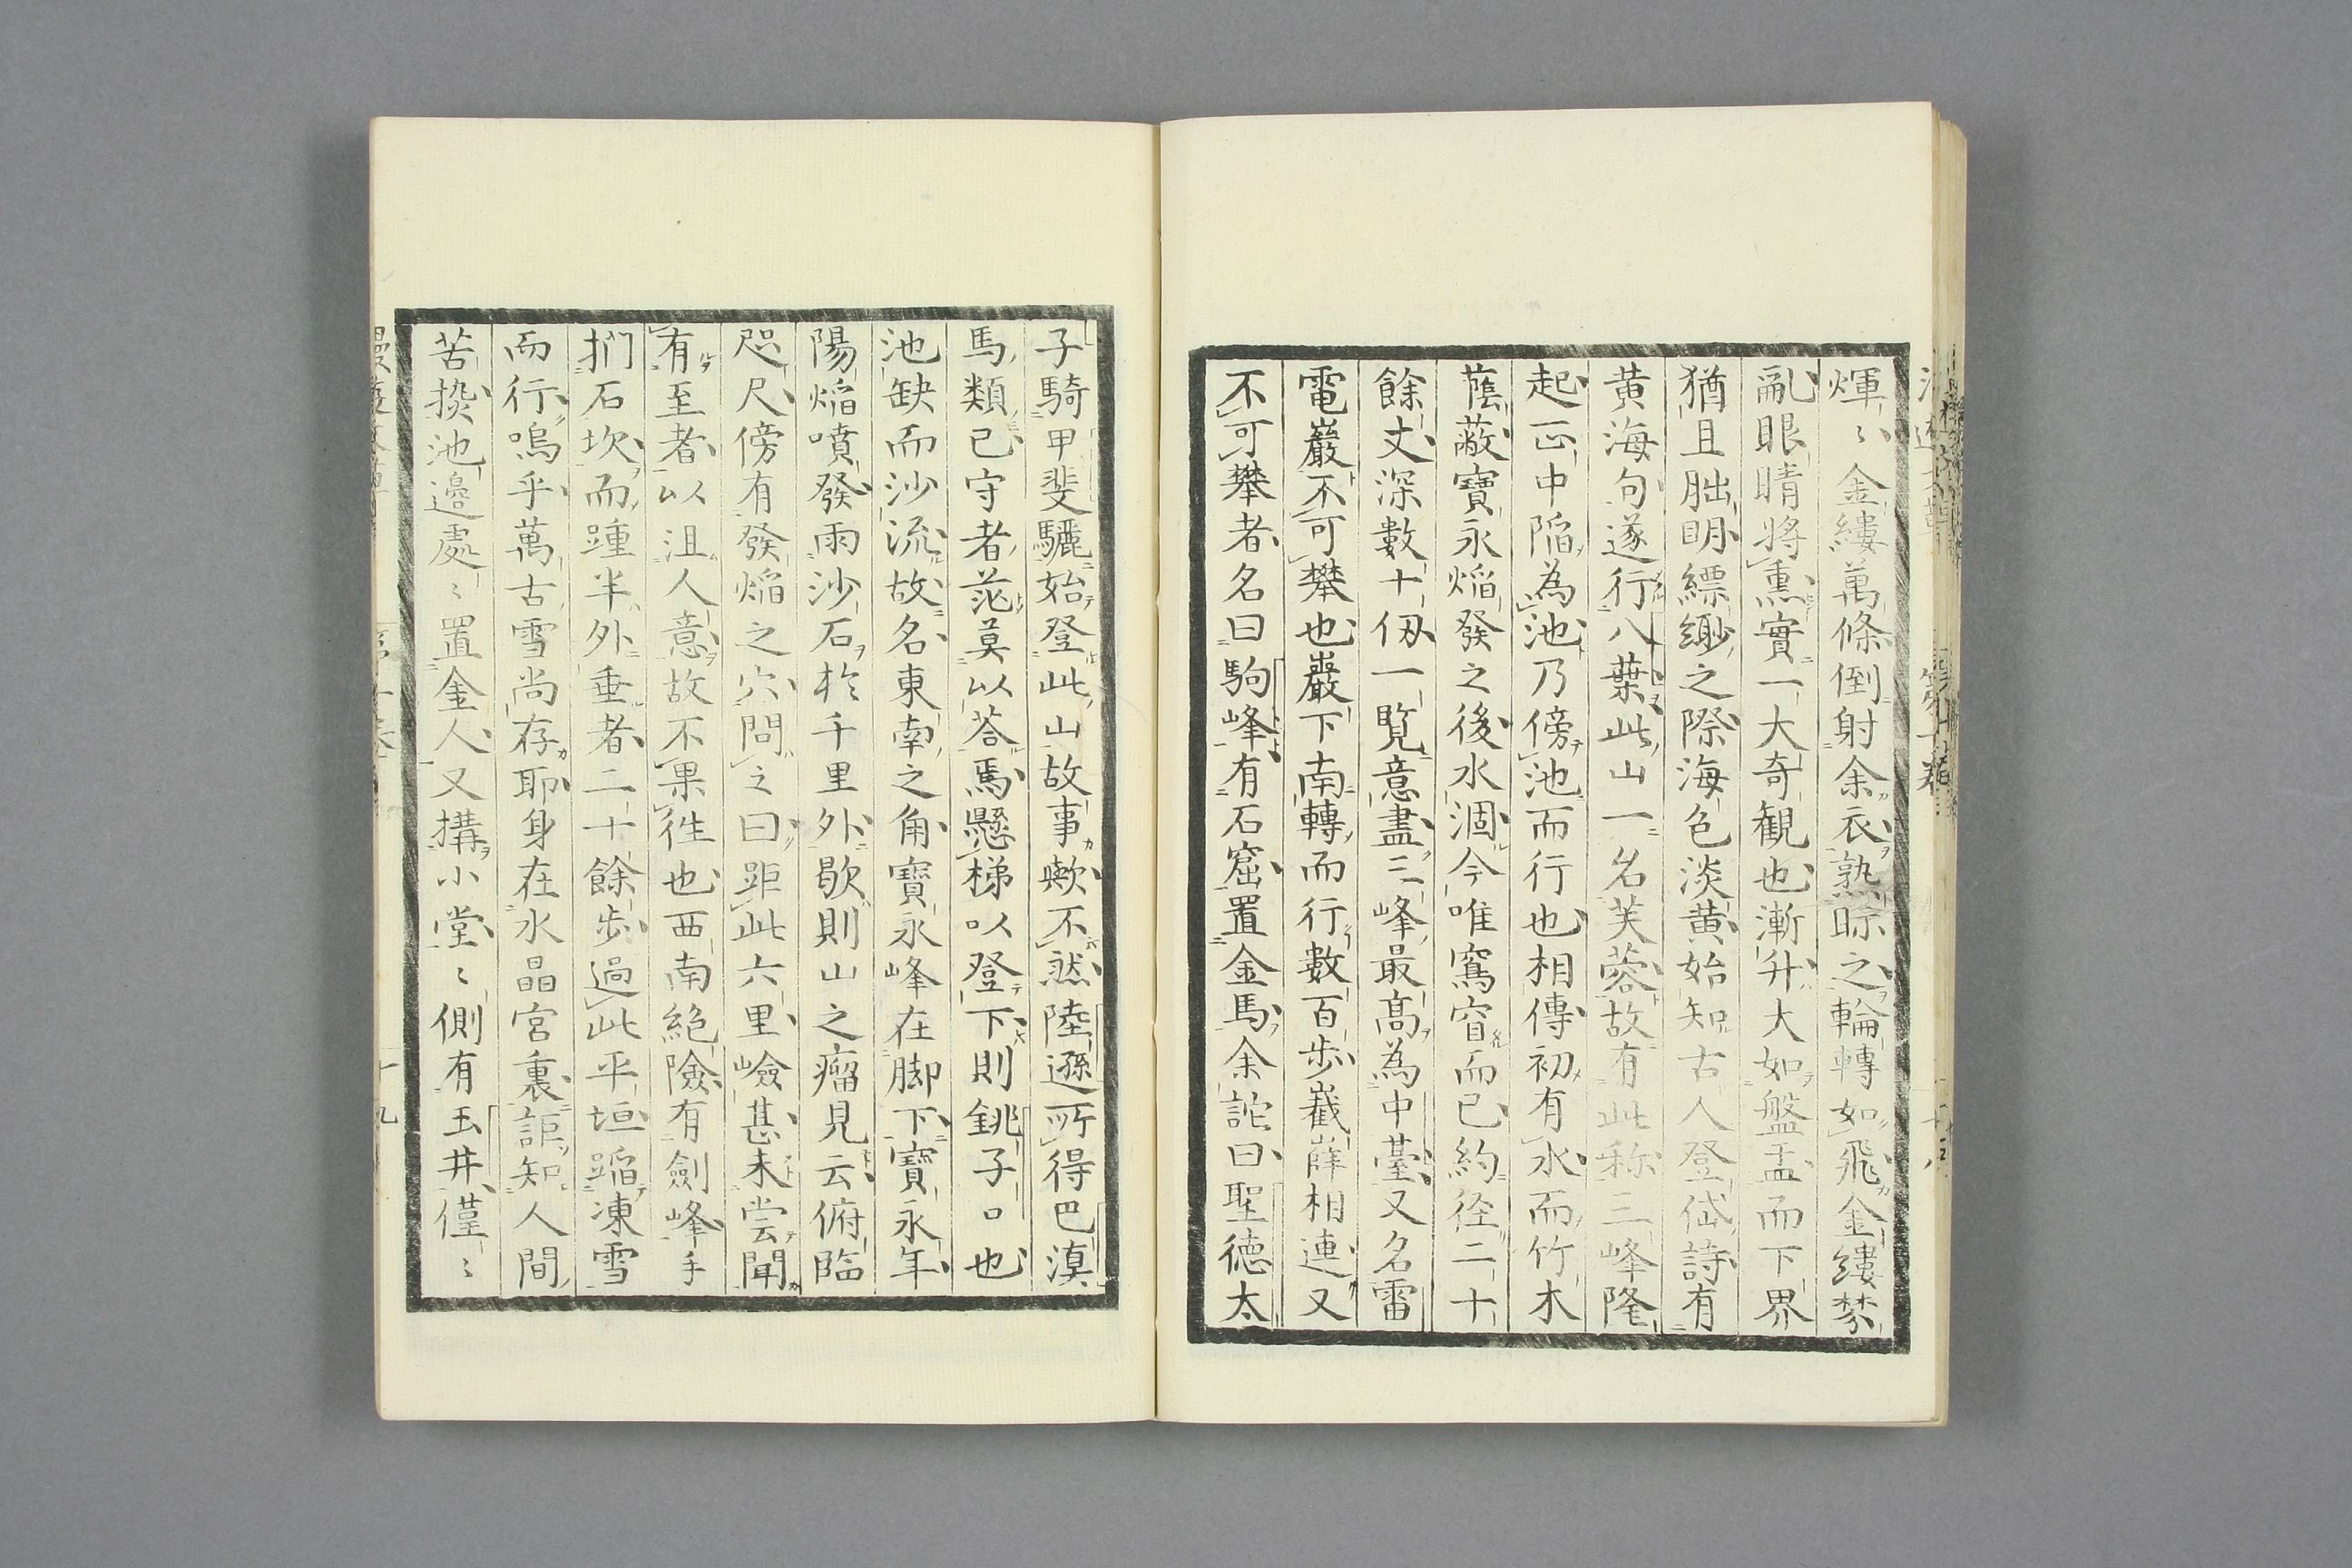 煇〻金縷萬條倒射余衣熟眎之輪轉如飛金縷棼
亂眼睛將熏實一大奇観也漸升大如盤盂而下界
猶且朏明縹緲之際海色淡黄始知古人登岱詩有
黄海句遂行八葉此山一名芙蓉故有此称三峰隆
起正中陷為池乃傍池而行也相傳初有水而竹木
蔭蔽寶永焔發之後水涸今唯窵窅而已約径二十
餘丈深數十仭一覧意盡三峰最高為中臺又名雷
電巖不可攀也巖下南轉而行數百步巀嶭相連又
不可攀者名曰駒峰有石窟置金馬余詑曰聖徳太
子騎甲斐驪始登此山故事歟不然陸遜所得巴漠
馬類已守者茫莫以荅焉懸梯以登下則銚子口也
池缺而沙流故名東南之角寶永峰在脚下寶永年
陽焔噴發雨沙石於千里外歇則山之瘤見云俯臨
咫尺傍有發焔之穴問之曰距此六里嶮甚未尝聞
有至者以沮人意故不果徃也西南絶險有劍峰手
捫石坎而踵半外垂者二十餘步過此平垣蹈凍雪
而行嗚乎萬古雪尚存耶身在水晶宮裏詎知人間
苦㷇池邉處〻置金人又搆小堂〻側有玉井僅〻
十九